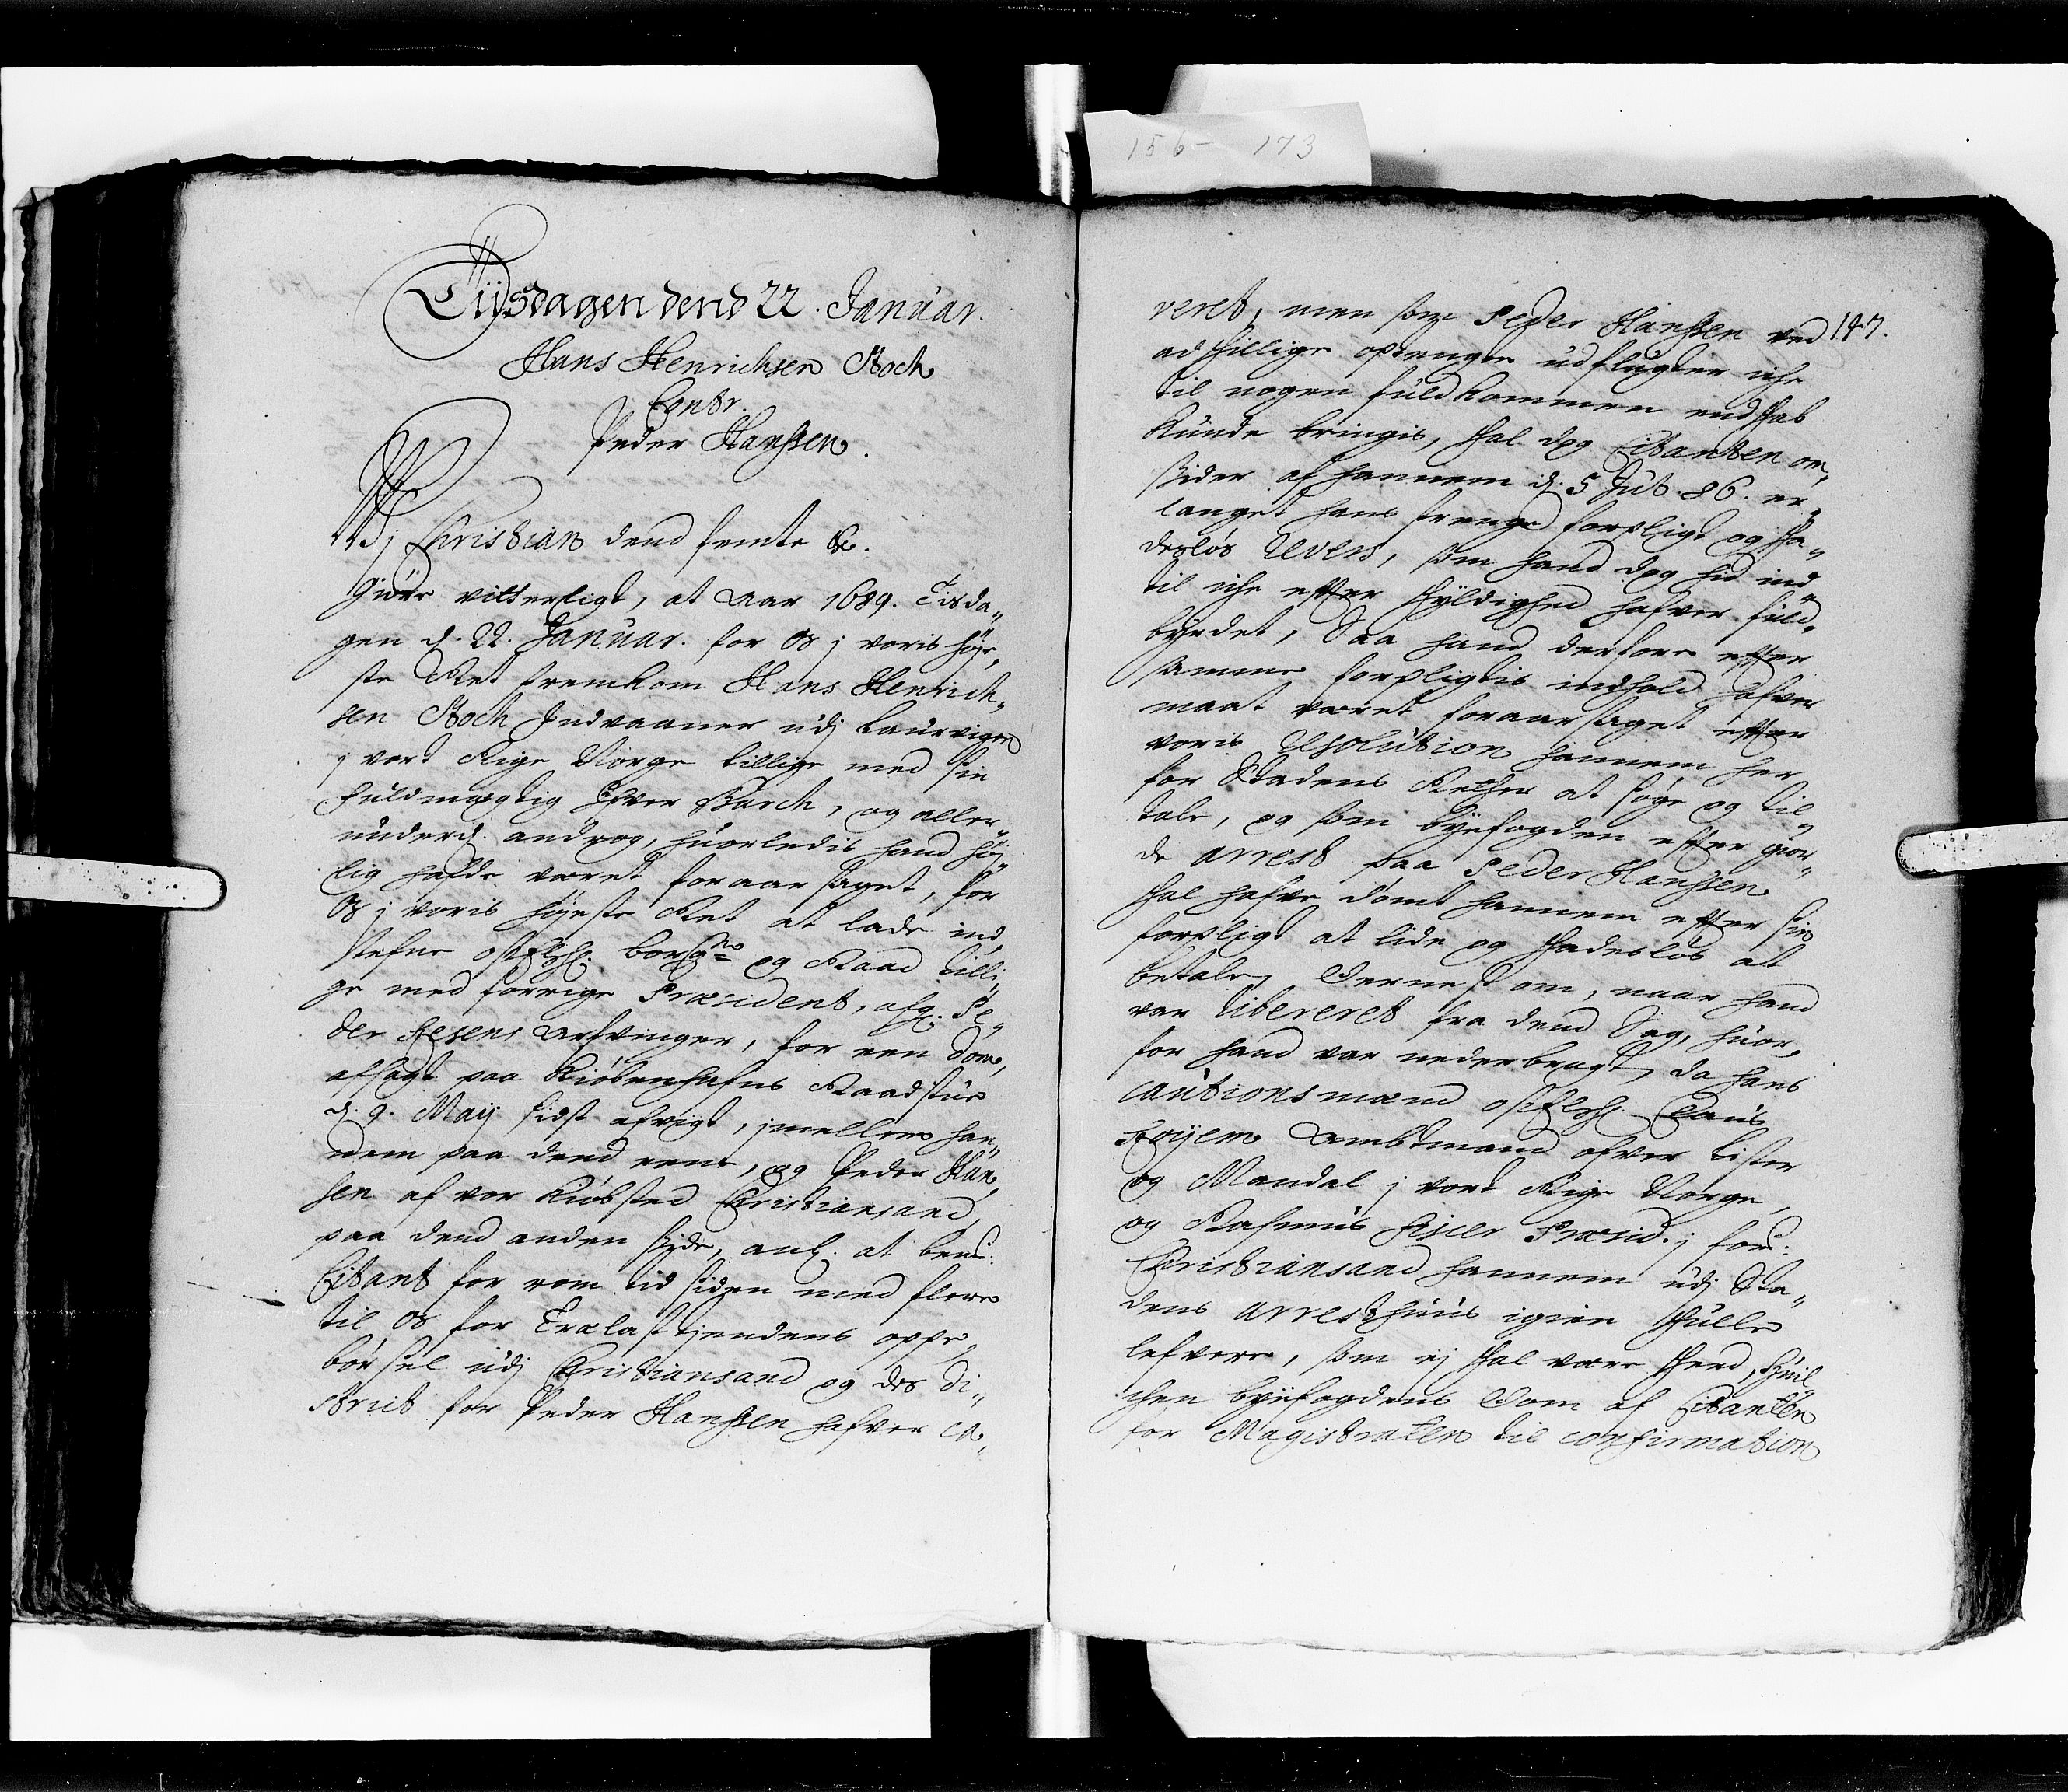 156- 173
Tijsdagen dend 22. Januar.
Hans Henrichsen Koch
Contr.
Peder Hanssen.
Wj Christian dend femte &c.
Giøre vitterligt, at Aar 1689. Tisda„
gen d. 22. Januar. for Os j voris høye„
ste Ret fremkom Hans Henrich„
sen Koch Indvaaner udj Laurvigen
j vort Rige Norge tillige med sin
fuldmægtig Iffver Barch, og aller„
underd. androg, huorledis hand høj„
lig hafde været foraarsaget, for
Os j voris høyeste Ret at lade ind
stefne os Elsk. borgm og Raad tilli„
ge med forrige Præsident, afg. Pe„
der Resens Arfvinger, for een dom,
afsagt paa Kiøbenhafns Raadstue
d. 9. Maij sidst afvigt, jmellem han„
nem paa dend eene, og Peder Han„
sen af vor Kiøbsted Christiansand,
paa dend anden side, anl. at bem:
Citant for rom tid siden med flere
til Os for Trælast tjendens oppe„
børsel udj Christiansand og des di„
strict for Peder Hanssen hafver ca„
veret, men som Peder Hanssen ved 147.
adskillige optenchte udflugter iche
til nogen fuldkommen endskab
kunde bringis, skal dog Citanten om„
sider af hannem d. 5 Jul. 86. er„
langet hans strenge forpligt og ska„
desløs Revers, som hand dog hid ind„
til iche efter skyldighed hafver fuld„
byrdet, Saa hand derfore efter
samme forpligtis indhold hafver
maat været foraarsaget efter
voris Resolution hannem her
for Stadens Retter at søge og til„
tale, og som byefogden efter gior„
de arrest paa Peder Hanssen
skal hafve dømt hannem efter sin
forpligt at lide og skadesløs at
betale, Dernest om, naar hand
var libereret fra dend Sag, huor„
for hand var nederbragt, da hans
cautionsmænd os Elsk. Claus
Røyem Ambtmand ofver Lister
og Mandal j vort Rige Norge,
og Rasmus Præsid. j for:
Christiansand hannem udj Sta„
dens arresthuus igien skulle
lefvere, som ej skal være skeed, huil„
chen byefogdens Dom af Citanten
for Magistraten til confirmation